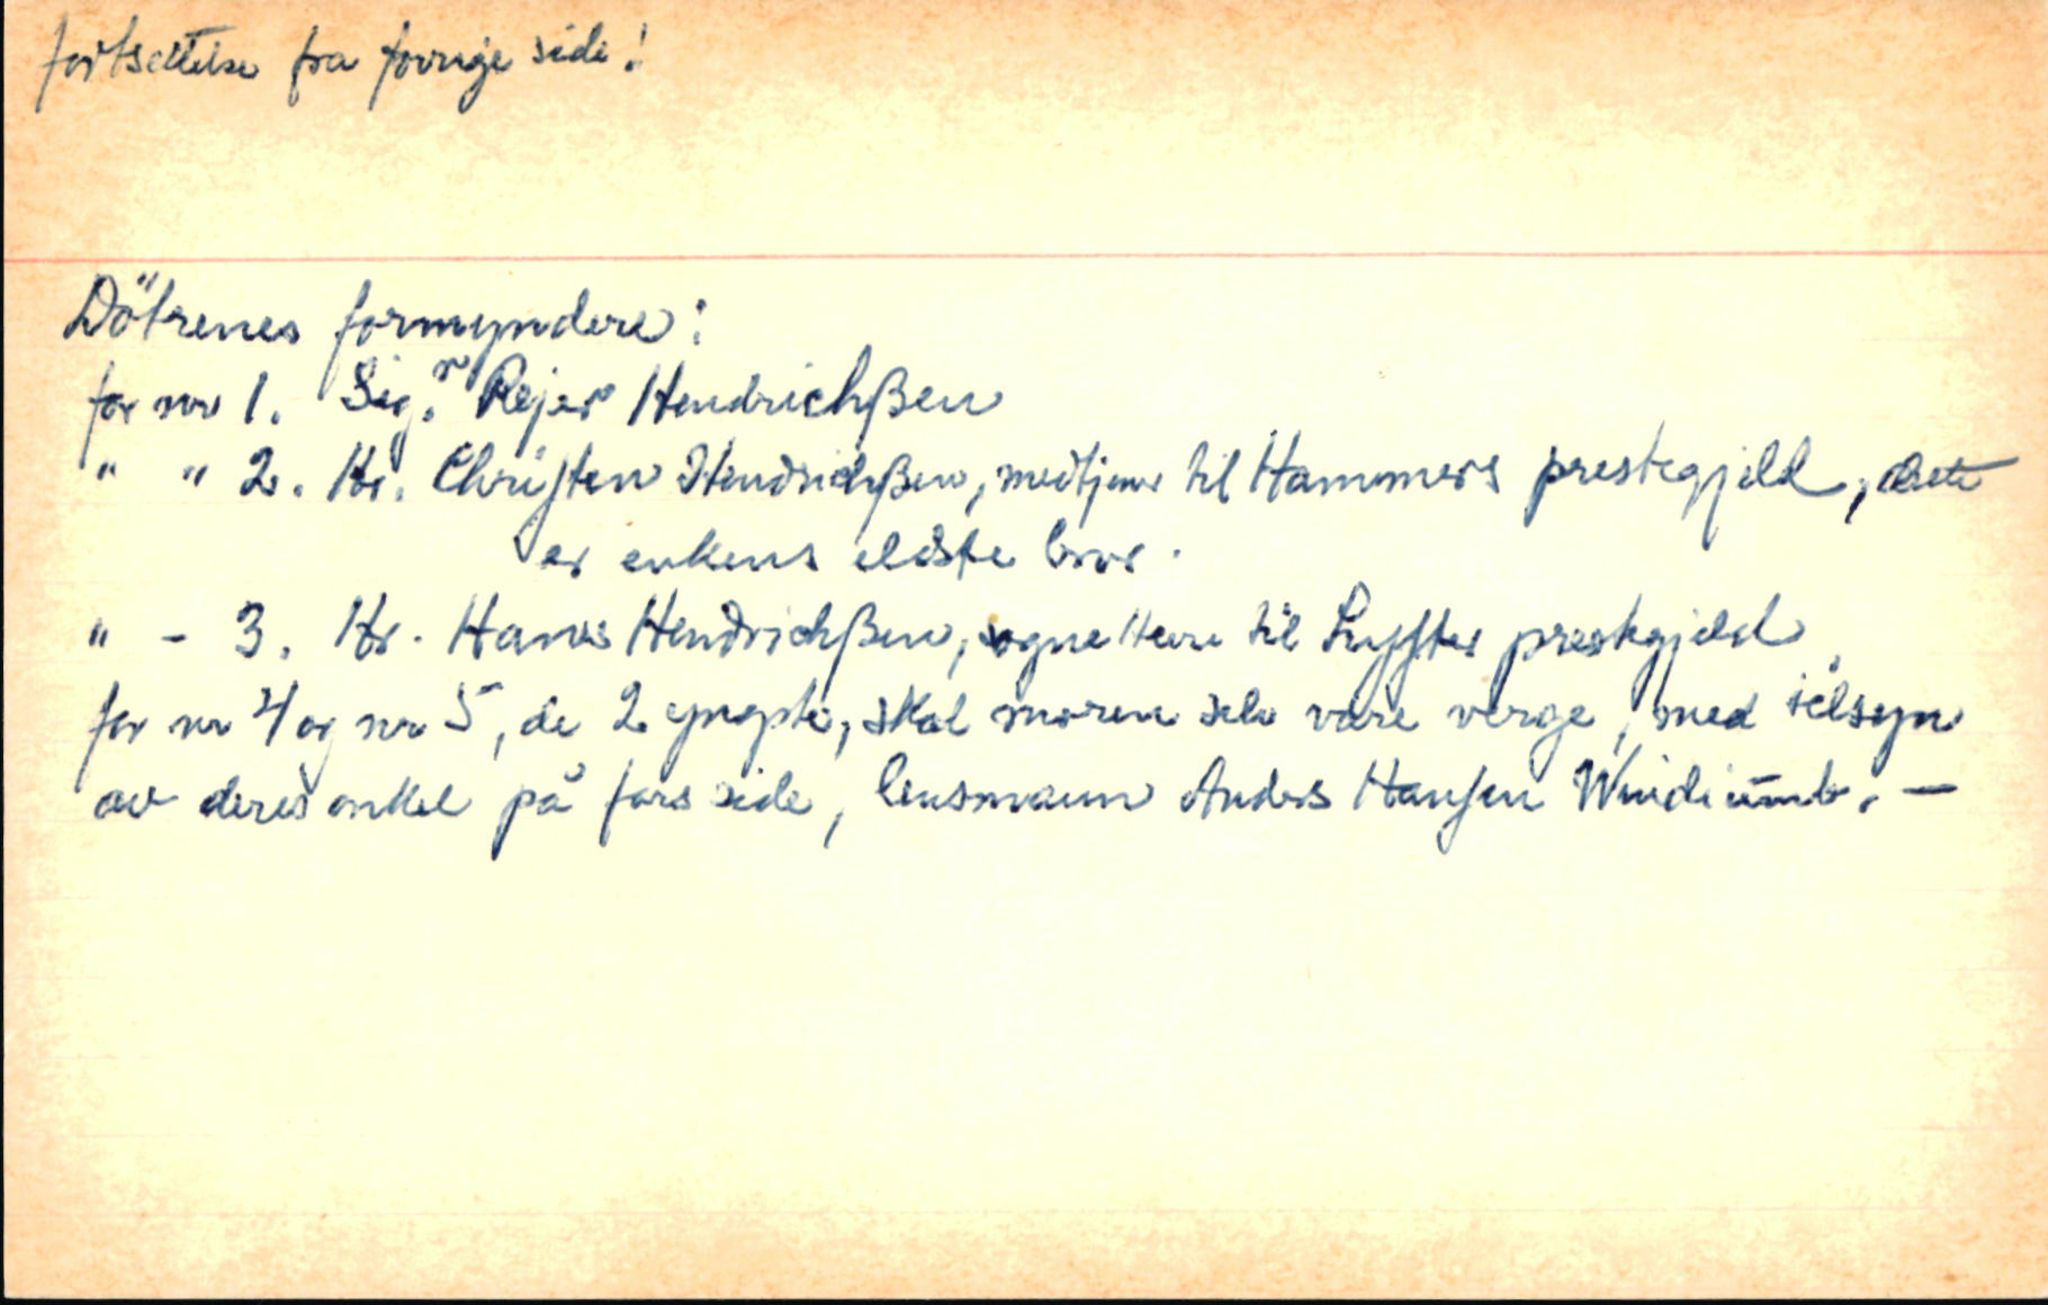 fortsettelse fra forrige side!
Dötrenes formyndere:
for nr 1. Sig.r Rejer Hendrichßen
" " 2. Hr. Christen Hendrichßen, medtjener til Hammers prestegjeld, dette
er enkens eldste bror.
" - 3. Hr. Hans Hendrichßen, sogneherre til Lyster prestegjeld
for nr 4 og nr 5, de 2 yngste, skal moren selv være verge, med tilsyn
av deres onkel på fars side, lensmann Anders Hansen Windiumb. —